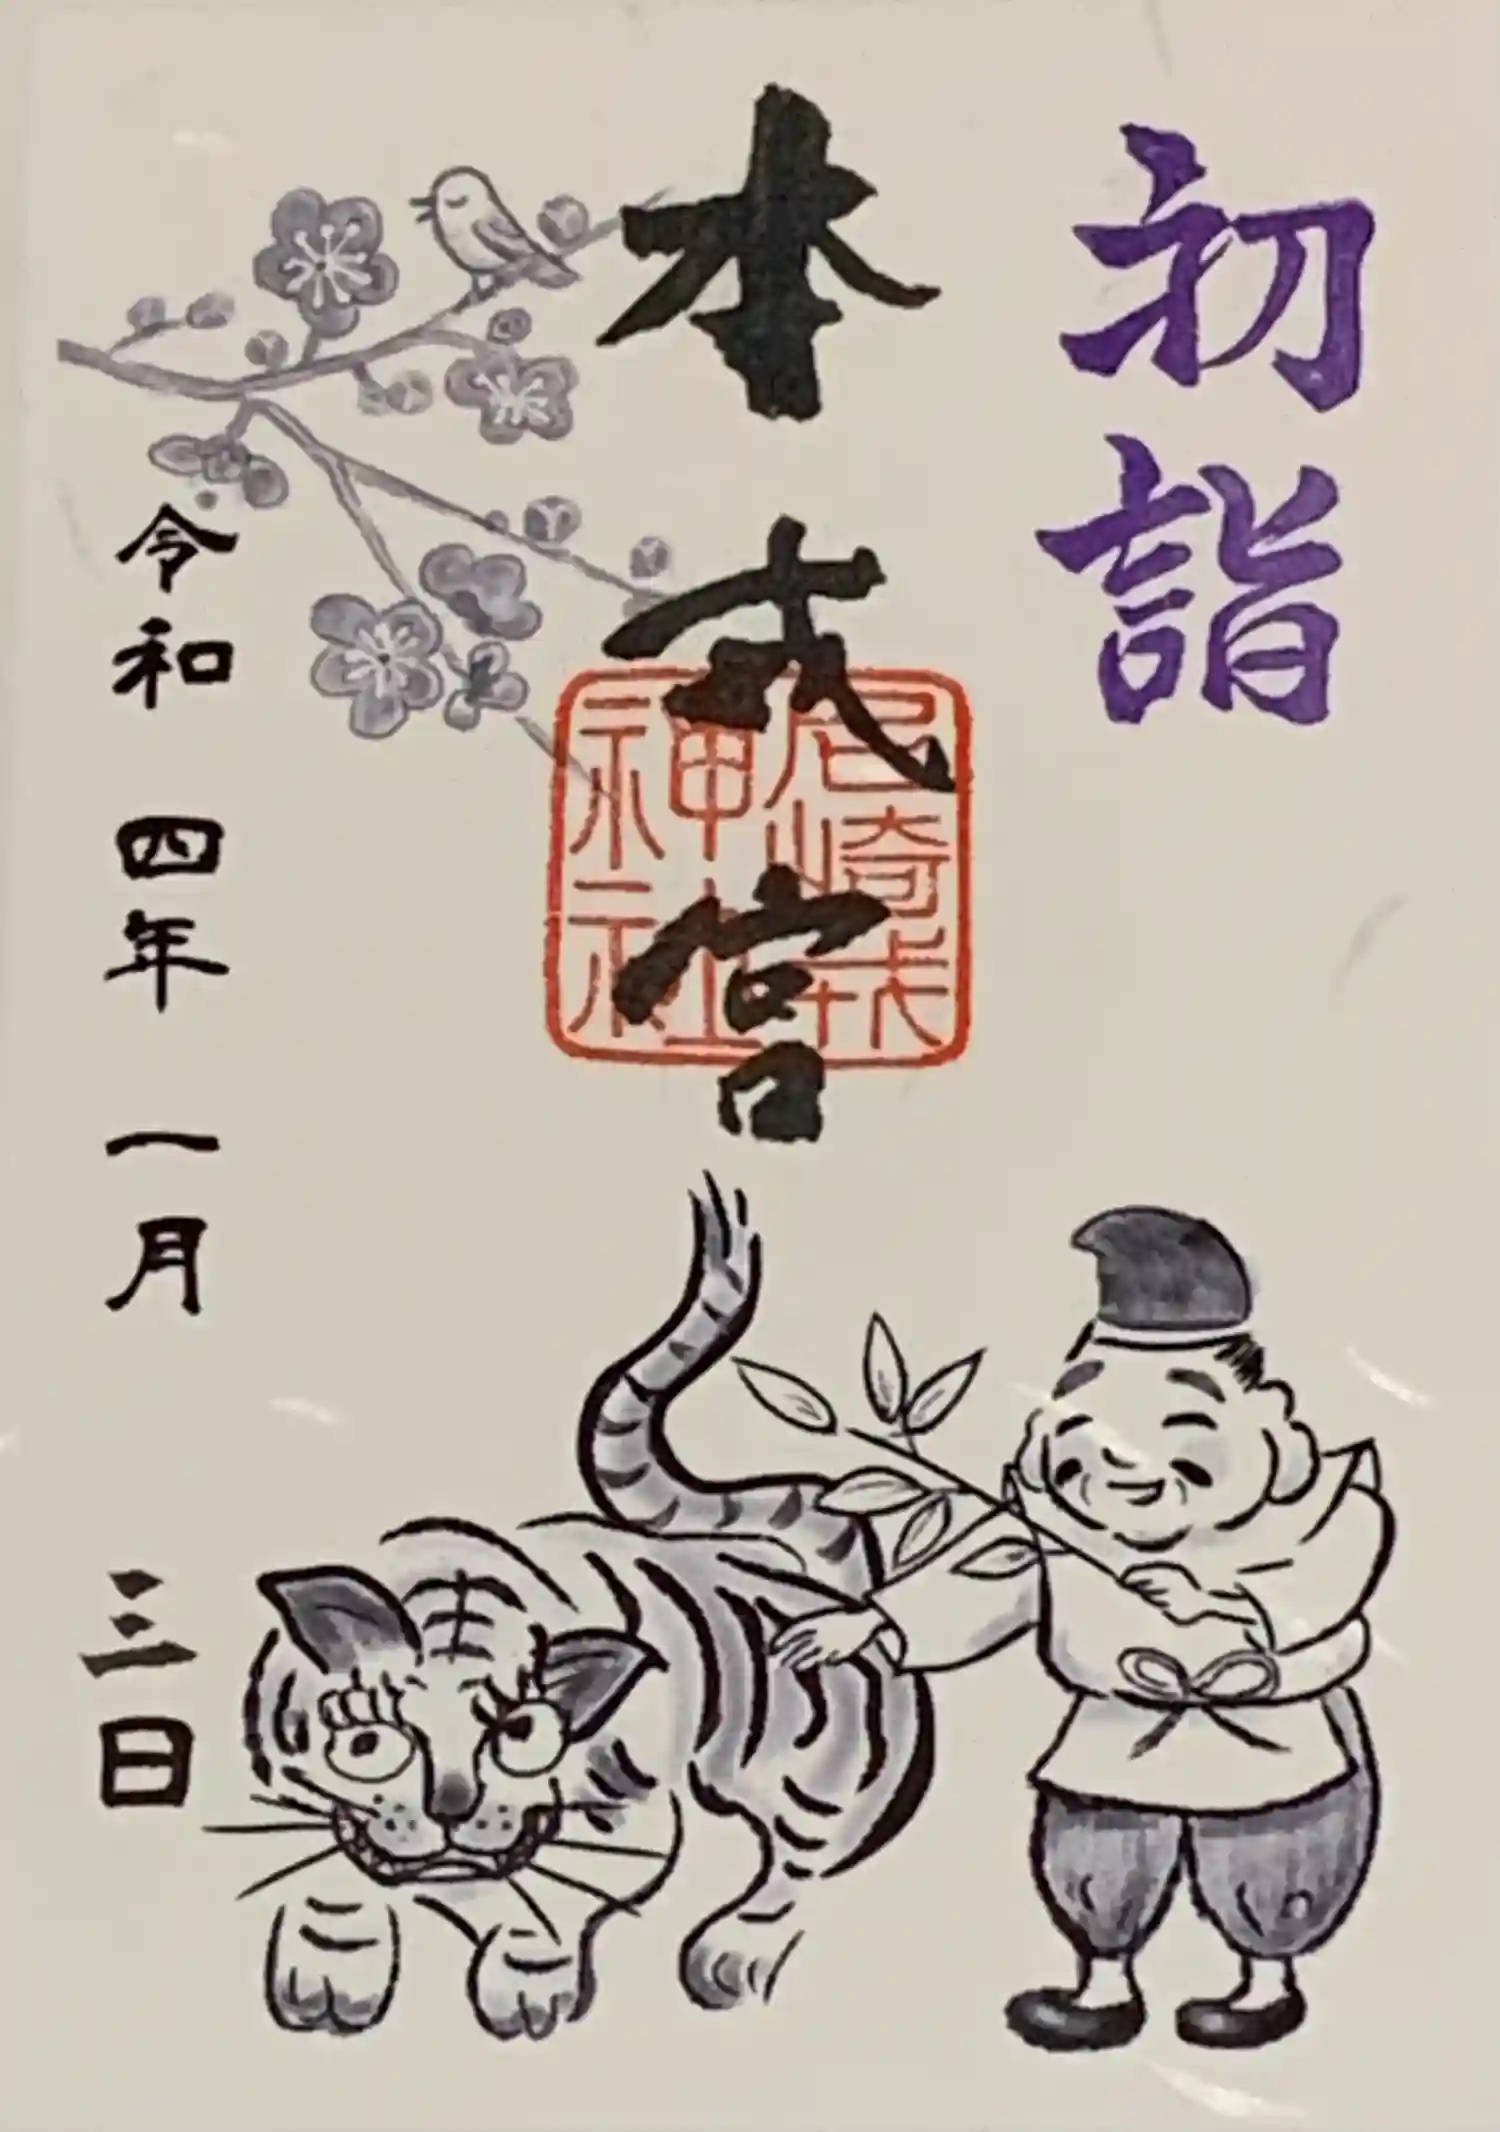 初詣
本戎宮
尼崎戎
神社
令和 四年 一月 三日